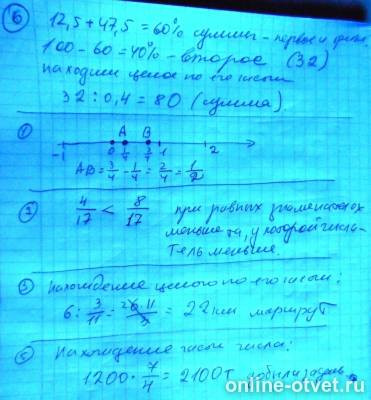 6
12,5 + 47,5 = 60% суммы - первое и
100 - 60 = 40% - второе (32)
находим целое по его части
32 : 0,4 = 80 (сумма)
1
A B
-1 0 1/4 3/4 1 2
AB = 3/4 - 1/4 = 2/4 = 1/2
2
4/17 < 8/17 при равных знаменателях
меньше та, у которой числи-
тель меньше.
3 Нахождение целого по его части:
6 : 3/11 = 6·11/3 = 22 км маршрут
Нахождение части числа:
1200 · 7/4 = 2100 т
online-otvet.ru